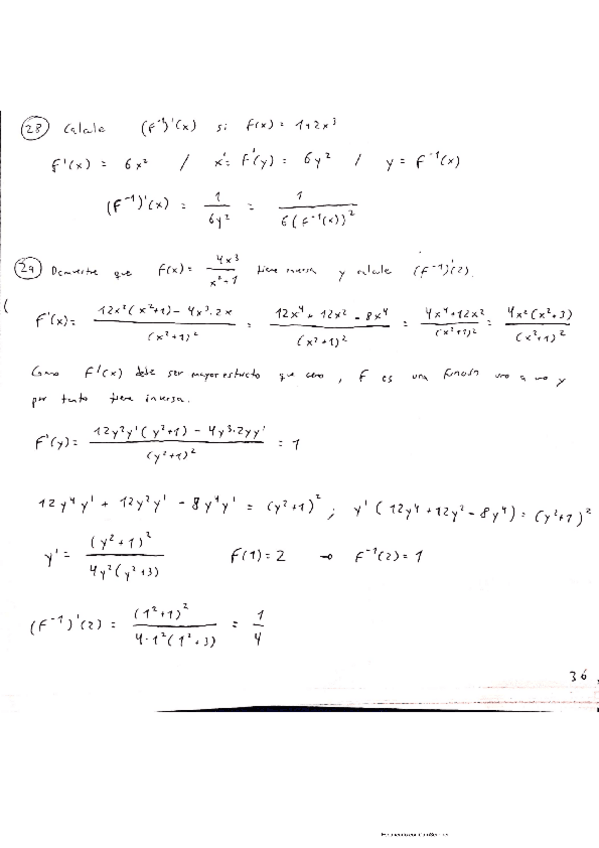 28 Calcule (f⁻¹)'(x) si f(x) = 1+2x³
f'(x) = 6x² / x' = f'(y) = 6y² / y = f⁻¹(x)
(f⁻¹)'(x) = 1/(6y²) = 1/(6(f⁻¹(x))²)
29 Demuestre que f(x) = 4x³/(x²+1) tiene inversa y calcule (f⁻¹)'(2).
f'(x) = (12x²(x²+1) - 4x³·2x)/(x²+1)² = (12x⁴+12x²-8x⁴)/(x²+1)² = (4x⁴+12x²)/(x²+1)² = (4x²(x²+3))/(x²+1)²
Como f'(x) debe ser mayor estricto que cero, f es una función uno a uno y
por tanto tiene inversa.
f'(y) = (12y²y'(y²+1) - 4y³·2yy')/(y²+1)² = 1
12y⁴y' + 12y²y' - 8y⁴y' = (y²+1)²; y'(12y⁴+12y²-8y⁴) = (y²+1)²
y' = (y²+1)²/(4y²(y²+3)) f(1)=2 → f⁻¹(2)=1
(f⁻¹)'(2) = (1²+1)²/(4·1²(1²+3)) = 1/4
36